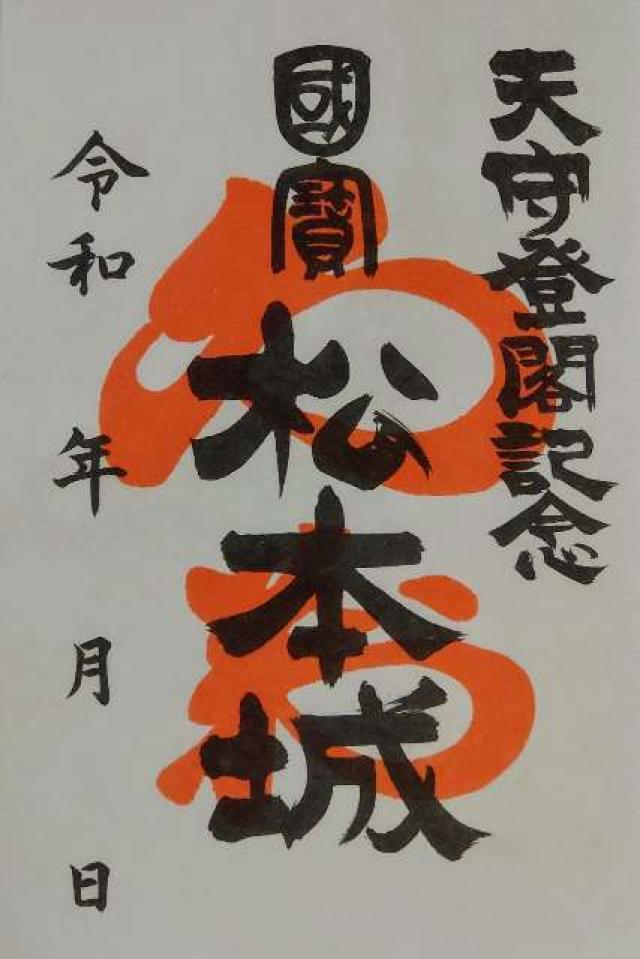 天守登閣記念
國寶
松本城
令和 年 月 日